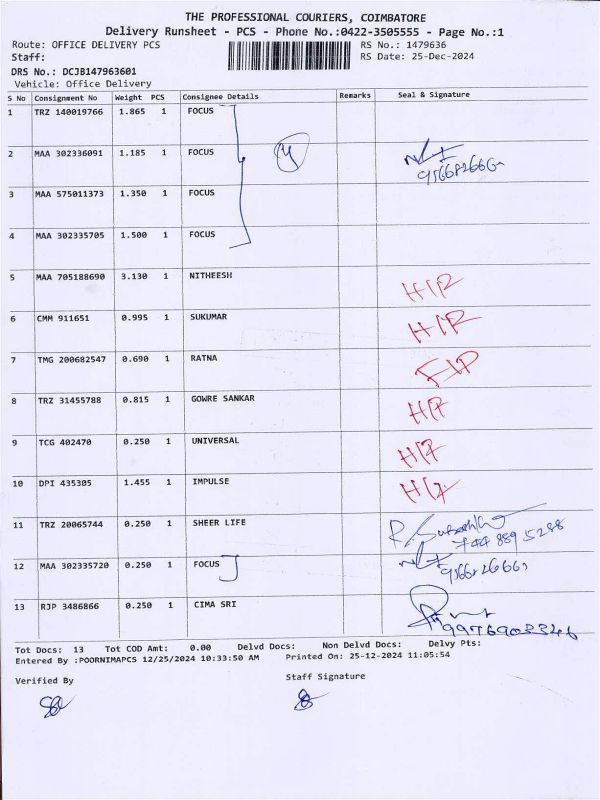 THE PROFESSIONAL COURIERS, COIMBATORE
Delivery Runsheet - PCS - Phone No.:0422-3505555 - Page No.:1
Route: OFFICE DELIVERY PCS RS No.: 1479636
Staff: RS Date: 25-Dec-2024
DRS No.: DCJB147963601
Vehicle: Office Delivery
S No Consignment No Weight PCS Consignee Details Remarks Seal & Signature
1 TRZ 140019766 1.865 1 FOCUS
2 MAA 302336091 1.185 1 FOCUS
3 MAA 575011373 1.350 1 FOCUS
4 MAA 302335705 1.500 1 FOCUS
5 MAA 705188690 3.130 1 NITHEESH
6 CMM 911651 0.995 1 SUKUMAR
7 TMG 200682547 0.690 1 RATNA
8 TRZ 31455788 0.815 1 GOWRE SANKAR
9 TCG 402470 0.250 1 UNIVERSAL
10 DPI 435305 1.455 1 IMPULSE
11 TRZ 20065744 0.250 1 SHEER LIFE
12 MAA 302335720 0.250 1 FOCUS
13 RJP 3486866 0.250 1 CIMA SRI
9976903346
Tot Docs: 13 Tot COD Amt: 0.00 Delvd Docs: Non Delvd Docs: Delvy Pts:
Entered By :POORNIMAPCS 12/25/2024 10:33:50 AM Printed On: 25-12-2024 11:05:54
Verified By Staff Signature